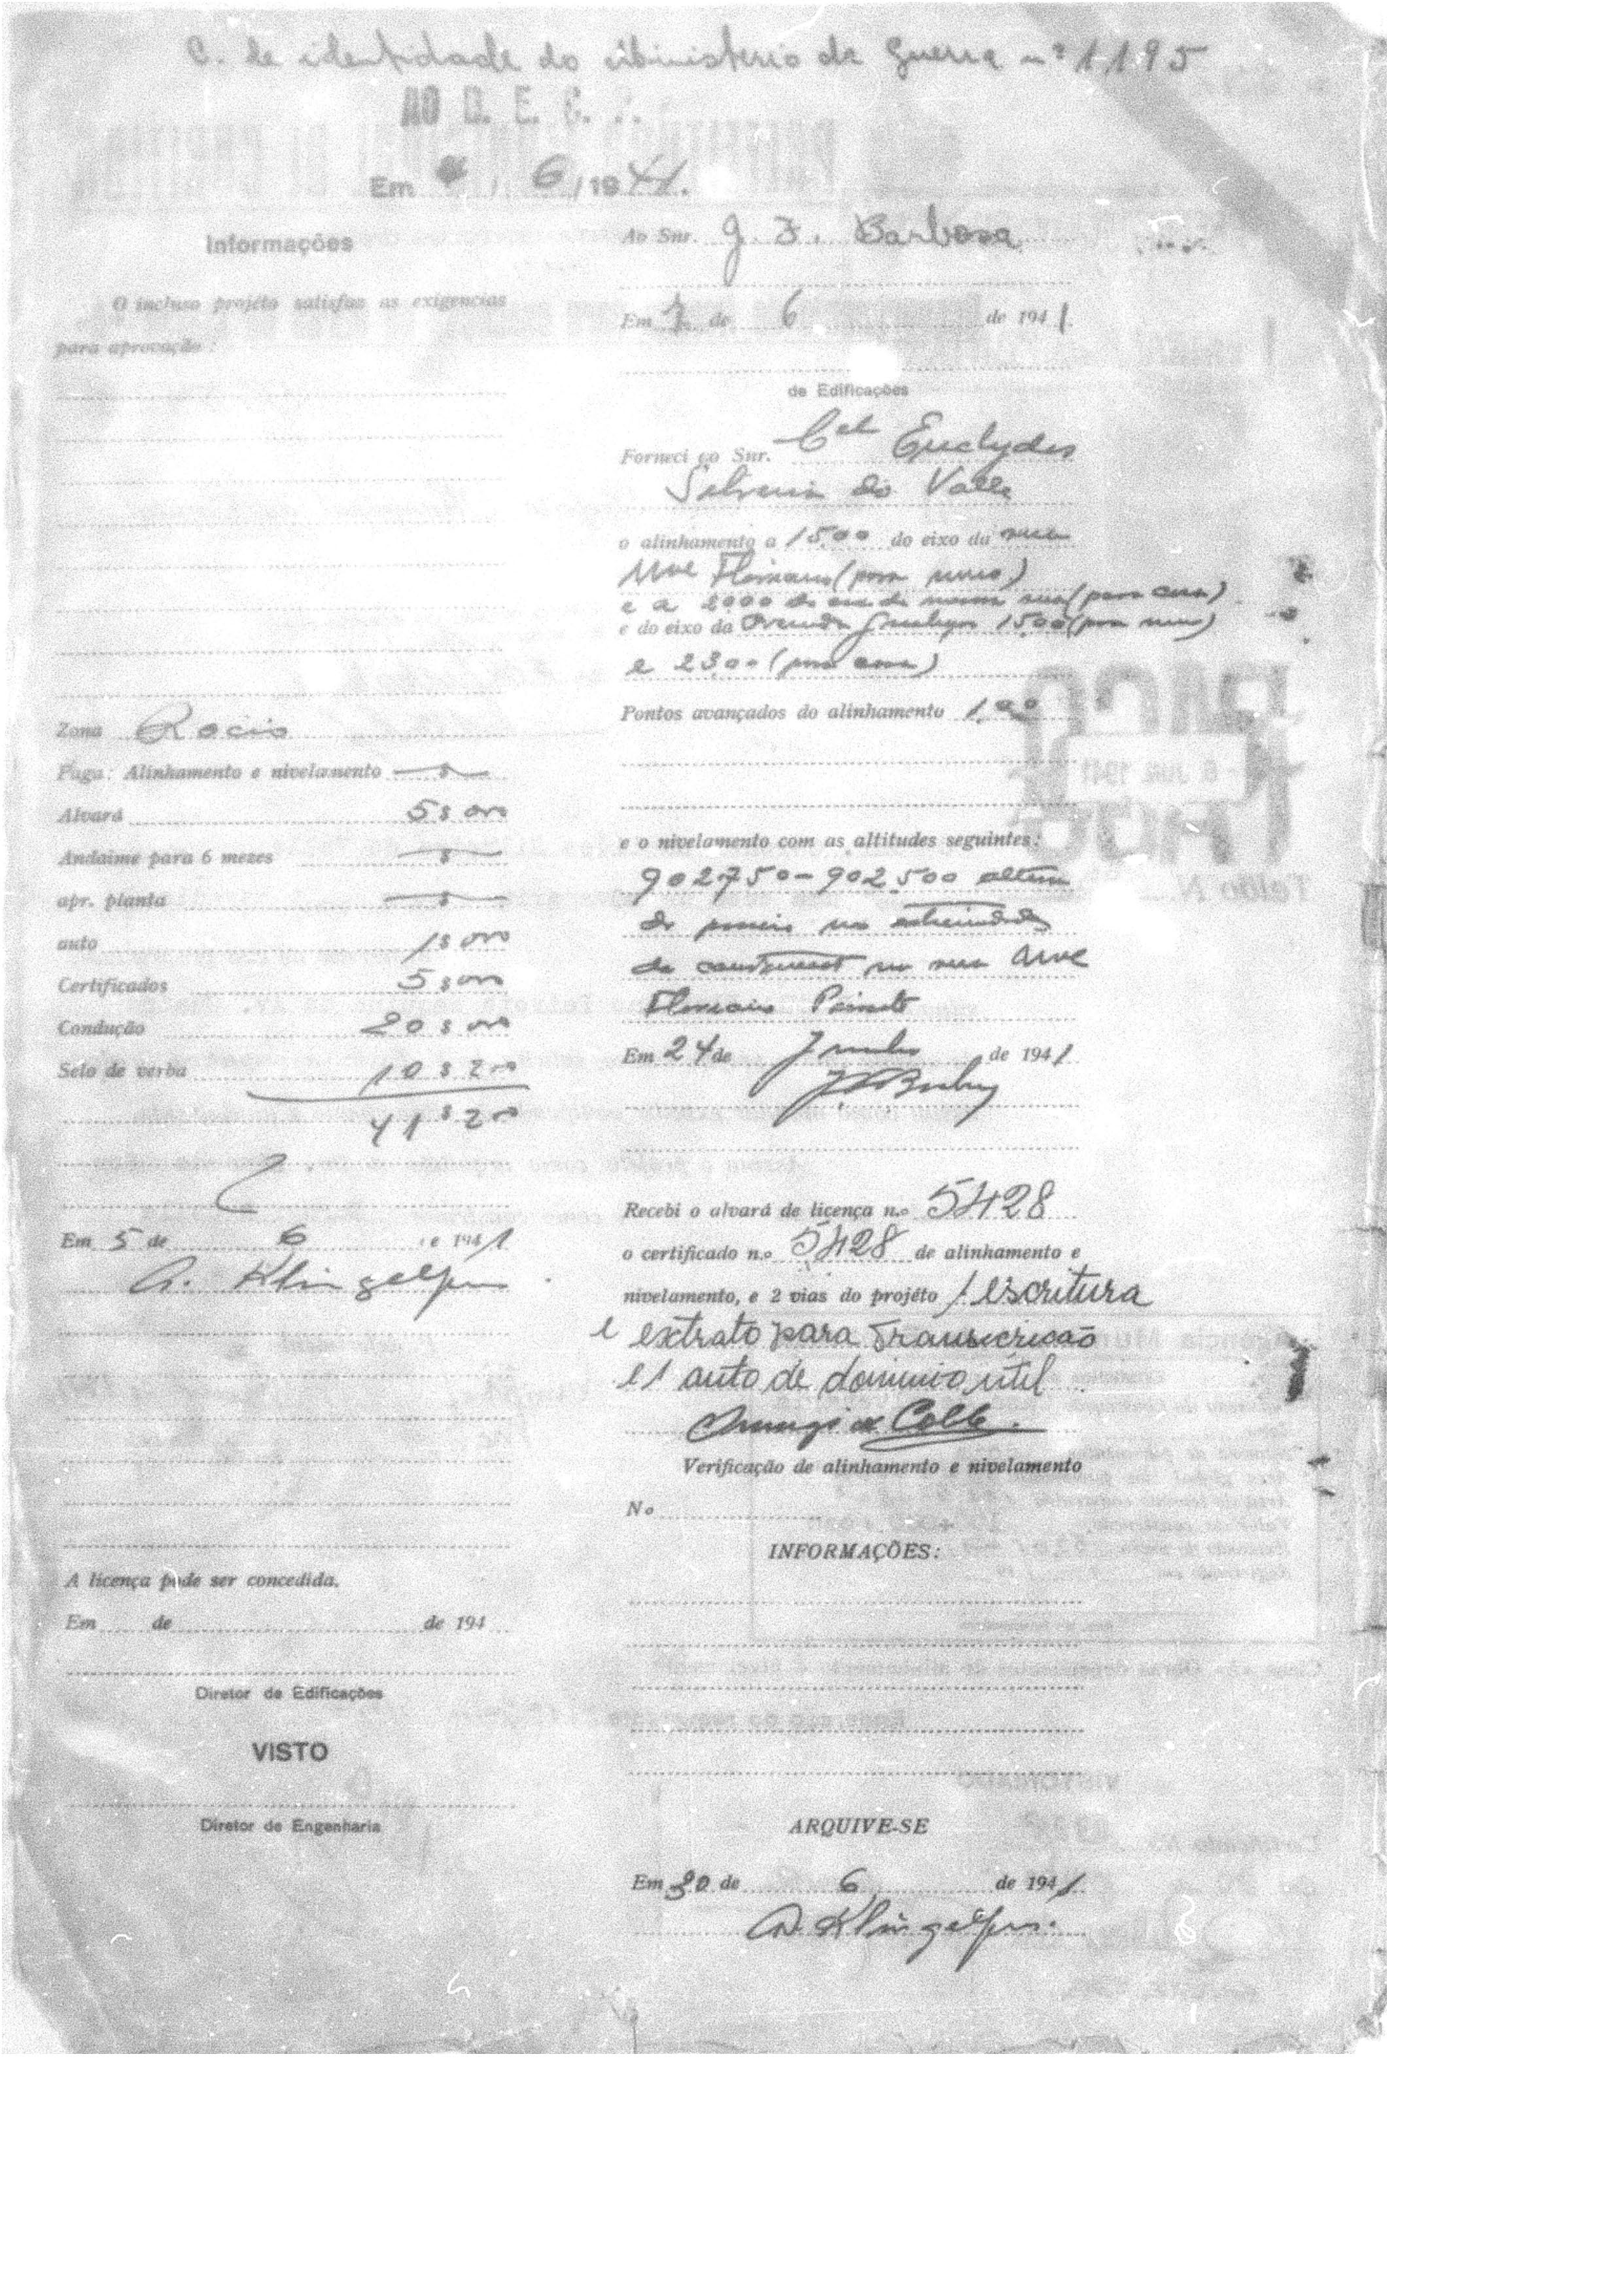 C. de identidade do Ministerio da Guerra nº 1195
AO D. E. C.
Em 6/1941.
Informações
O incluso projéto satisfas as exigencias
para aprovação:
Zona Rocio
Paga: Alinhamento e nivelamento —$—
Alvará 5$000
Andaime para 6 mezes —$—
apr. planta —$—
auto 1$000
Certificados 5$000
Condução 20$000
Selo de verba 10$200
41$200
Em 5 de 6 e 1941
A. Klingelfus
A licença pode ser concedida.
Em de de 194
Diretor de Edificações
VISTO
Diretor de Engenharia
Ao Snr. J. F. Barbosa
Em 7 de 6 de 1941
de Edificações
Forneci ao Snr. Cel Euclydes
Silveira do Valle
o alinhamento a 15,00 do eixo da rua
Floriano (para muro)
e a 2000 do da mesma rua (para casa)
e do eixo da 15,00 (para muro)
e 23,00 (para casa)
Pontos avançados do alinhamento 1,00
e o nivelamento com as altitudes seguintes:
902750-902.500 altura
do passeio nas extremidades
da na rua
Floriano Peixoto
Em 24 de Junho de 1941
Recebi o alvará de licença n.o 5428
o certificado n.o 5428 de alinhamento e
nivelamento, e 2 vias do projéto 1 escritura
e extrato para Transcricão
e 1 auto de dominio util
Verificação de alinhamento e nivelamento
No
INFORMAÇÕES:
ARQUIVE-SE
Em 30 de 6 de 1941
A. Klingelfus.
PAGO
6 JUN 1941
Talão N.